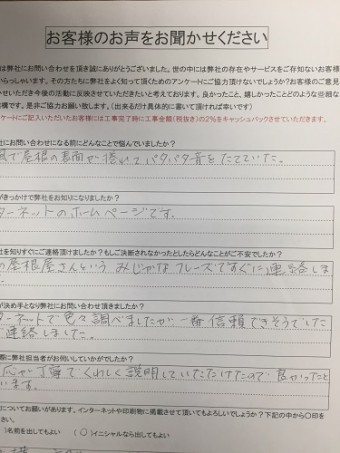 お客様のお声をお聞かせください
は弊社にお問い合わせを頂き誠にありがとうございました。世の中には弊社の存在やサービスをご存知ないお客様
いらっしゃいます。その方たちに弊社をよく知って頂くためのアンケートにご協力頂けないでしょうか?お客様のご意見
かせいただき今後の活動に反映させていただきたいと考えております。良かったこと、嬉しかったことどのような些細な
構です。是非ご協力お願い致します。(出来るだけ具体的に書いて頂ければ幸いです)
ケートにご記入いただいたお客様には工事完了時に工事金額(税抜き)の2%をキャッシュバックさせていただきます。
社にお問い合わせになる前にどんなことで悩んでいましたか?
風で屋根の表面が捲れてパタパタ音をたてていた。
がきっかけで弊社をお知りになりましたか?
ターネットのホームページです。
社を知りすぐにご連絡頂けましたか?もしご決断されなかったとしたらどんなことがご不安でしたか?
の屋根屋さんという みじかなフレーズですぐに連絡しま
が決め手となり弊社にお問い合わせ頂きましたか?
ターネットで色々調べましたが、一番信頼できそうでした
連絡しました。
際に弊社担当者がお伺いしていかがでしたか?
応が丁寧でくわしく説明していただけたので 良かったと
います。
についてお願いがあります。インターネットや印刷物に掲載させて頂いてもよろしいでしょうか?下記の中から〇印を
さい。
)名前を出してもよい (〇)イニシャルなら出してもよい